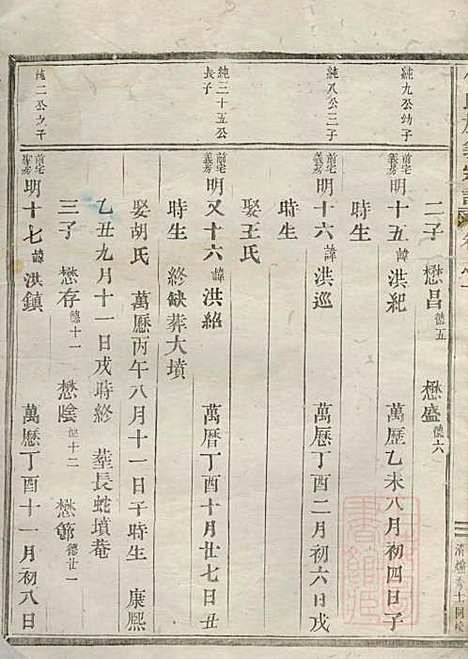 二子 懋昌德五 懋盛德六
純九公幼子
前宅義房 明十五諱洪紀 萬歷乙未八月初四日子
時生
純八公三子
前宅義房 明十六諱洪巡 萬歷丁酉二月初六日戌
時生
娶王氏
純三十五公長子
前宅義房 明又十六諱洪紹 萬曆丁酉十月廿七日丑
時生 終缺葬大墳
娶胡氏 萬歷丙午八月十一日子時生 康熙
乙丑九月十一日戌時終 葬長蛇墳菴
三子 懋存德十一 懋陰德十二 懋爺德廿一
純二公次子
前宅 明十七諱洪鎮 萬歷丁酉十一月初八日